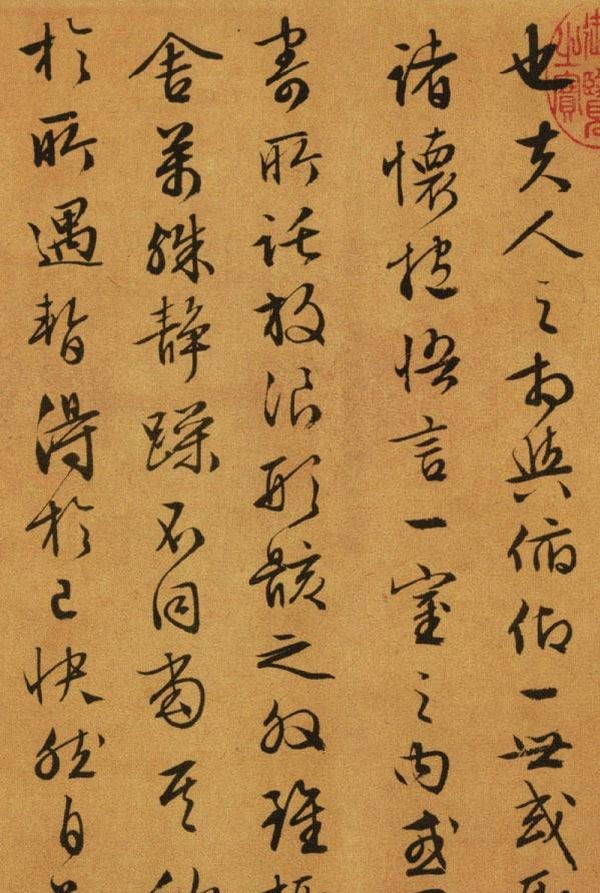 也夫人之相與俯仰一世或
諸懷抱悟言一室之内或
寄所託放浪形骸之外雖
舍萬殊静躁不同當其
於所遇暫得於己快然自
御覽之寶